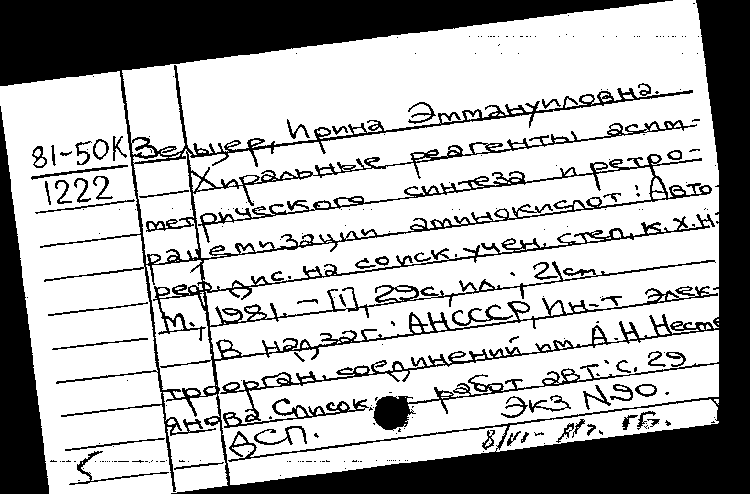 81-50К
1222
Зельцер, Ирина Эммануиловна.
Хиральные реагенты асим-
метрического синтеза и ретро-
рацемизации аминокислот: Авто-
реф. дис. на соиск. учен. степ. к.х.н.
М., 1981. - [1], 29с., ил.; 21см.
В надзаг.: АНСССР, Ин-т элек-
троорган. соединений им. А.Н. Несме
янова. Список работ авт.: с. 29
ДСП. Экз N90.
5